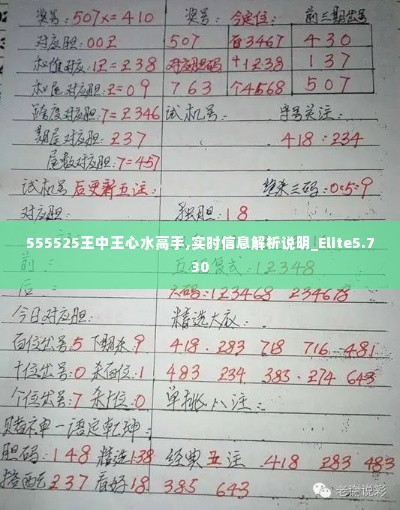 奖号:507x=410 奖号: 今定位: 前三期奖号
对应胆:00王 507 百3467 430
和值对应:王=238 对应胆码 十1238 137
和尾对应胆:=09 763 个4568 507
跨度对应胆:7=2346 试机号: 字号关注:
期尾对应胆:237 418:234
尾数对应胆:7=457
试机号后更新五注: 绝杀三码:0:5:9
对应胆: 独胆:18
555525王中王心水高手,实时信息解析说明_Elite5.7
30
前: 五码复式:12348
后: 六码:123468 234678
今日对应胆: 精选大底:
百位奖号5下期杀9 418.283 718 716-481
十位奖号:0杀百位:1 483 234 383-274 643
个位奖号:7杀十位:0 单挑八注:
赌神单一语定乾坤:
胆码:148 精选138 经典五注 418 283 483
237 看好18 385 643
老烧说彩